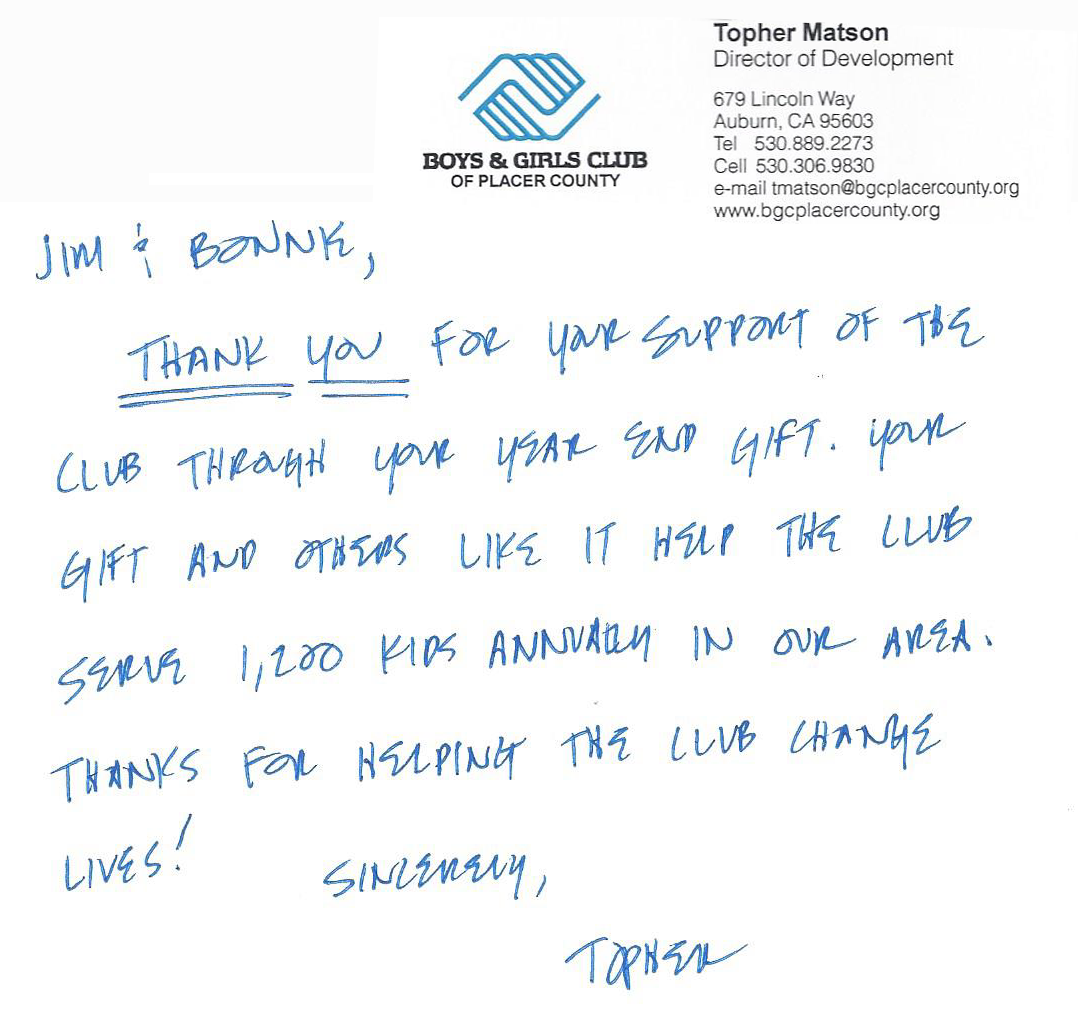 Topher Matson
Director of Development
679 Lincoln Way
Auburn, CA 95603
Tel 530.889.2273
Cell 530.306.9830
e-mail tmatson@bgcplacercounty.org
www.bgcplacercounty.org
BOYS & GIRLS CLUB
OF PLACER COUNTY
JIM & BONNIE,
THANK YOU FOR YOUR SUPPORT OF THE
CLUB THROUGH YOUR YEAR END GIFT. YOUR
GIFT AND OTHERS LIKE IT HELP THE CLUB
SERVE 1,200 KIDS ANNUALLY IN OUR AREA.
THANKS FOR HELPING THE CLUB CHANGE
LIVES!
SINCERELY,
TOPHER